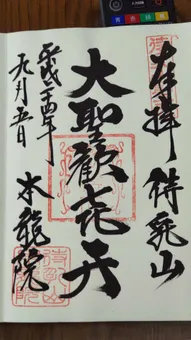 奉拝 待乳山
大聖歓喜天
平成二十四年
九月五日
本龍院